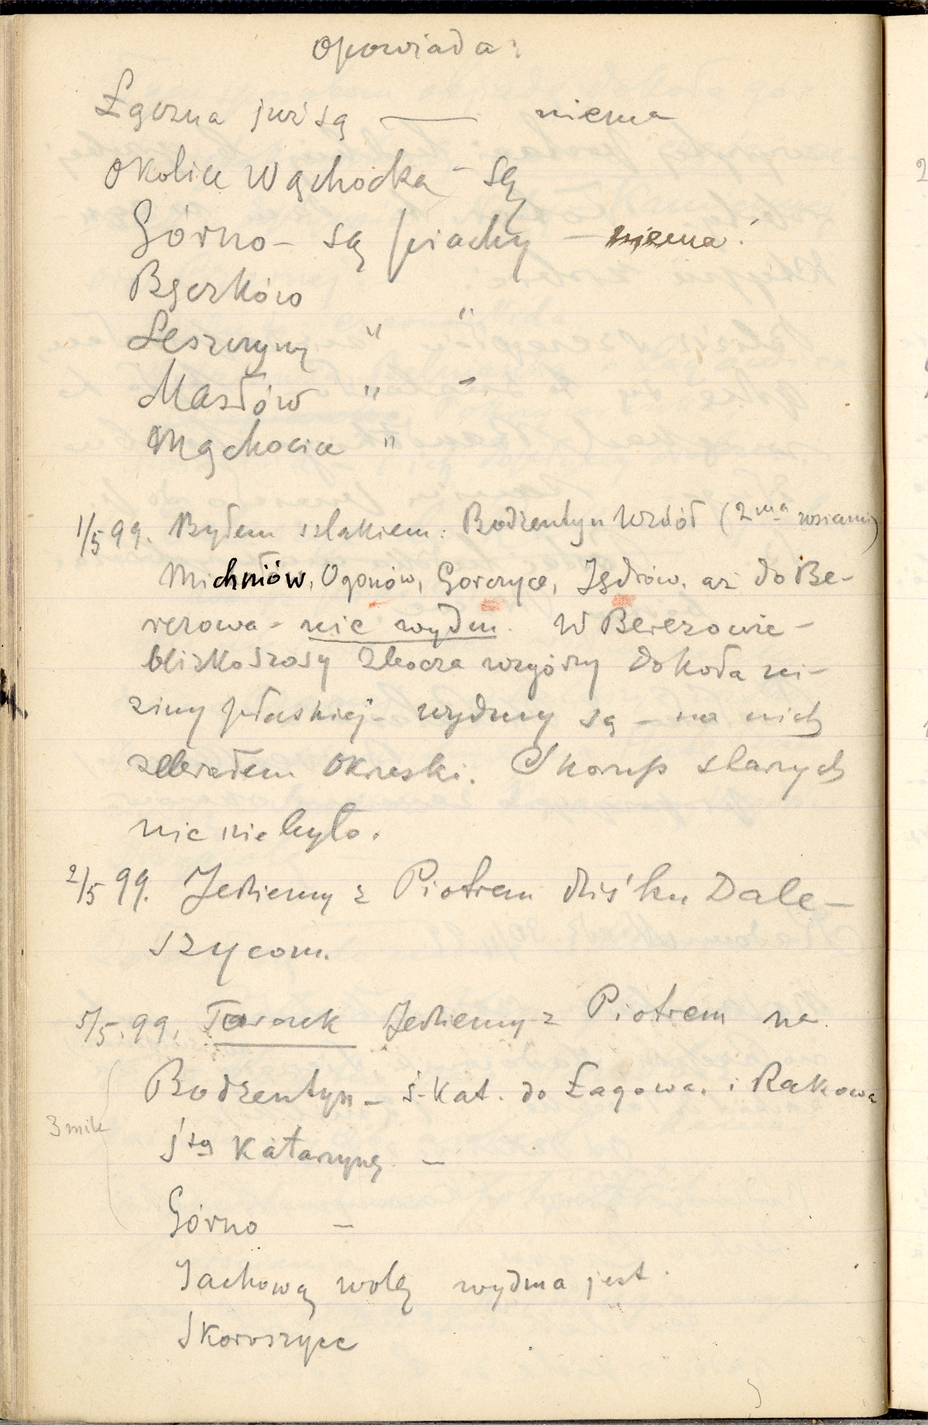 Opowiada:
Łączna już są —— niema
Okolice Wąchocka - są
Górno - są piachy - niema!
Bęczków
Leszczyny " "
Masłów " "
Mąchocice "
1/5 99. Byłem szlakiem: Bodzentyn Wzdół (2ma
Michniów, Ogonów, Gorczyce, Jędrów. aż do Be-
rezowa - nic wydm. W Berezowie -
blizko szosy zbocza wzgórzy dokoła ni-
ziny płaskiej - wydmy są - na nich
zebrałem Okrzeski. Skorup starych
nic nie było.
2/5 99. Jedziemy z Piotrem dziś ku Dale-
szycom.
5/5. 99. Jedziemy z Piotrem na
Bodzentyn - ś-Kat. do Łagowa. i Rakowa
3 mile
Stą Katarzynę -
Górno -
wolę wydma jest.
Skorzeszyce